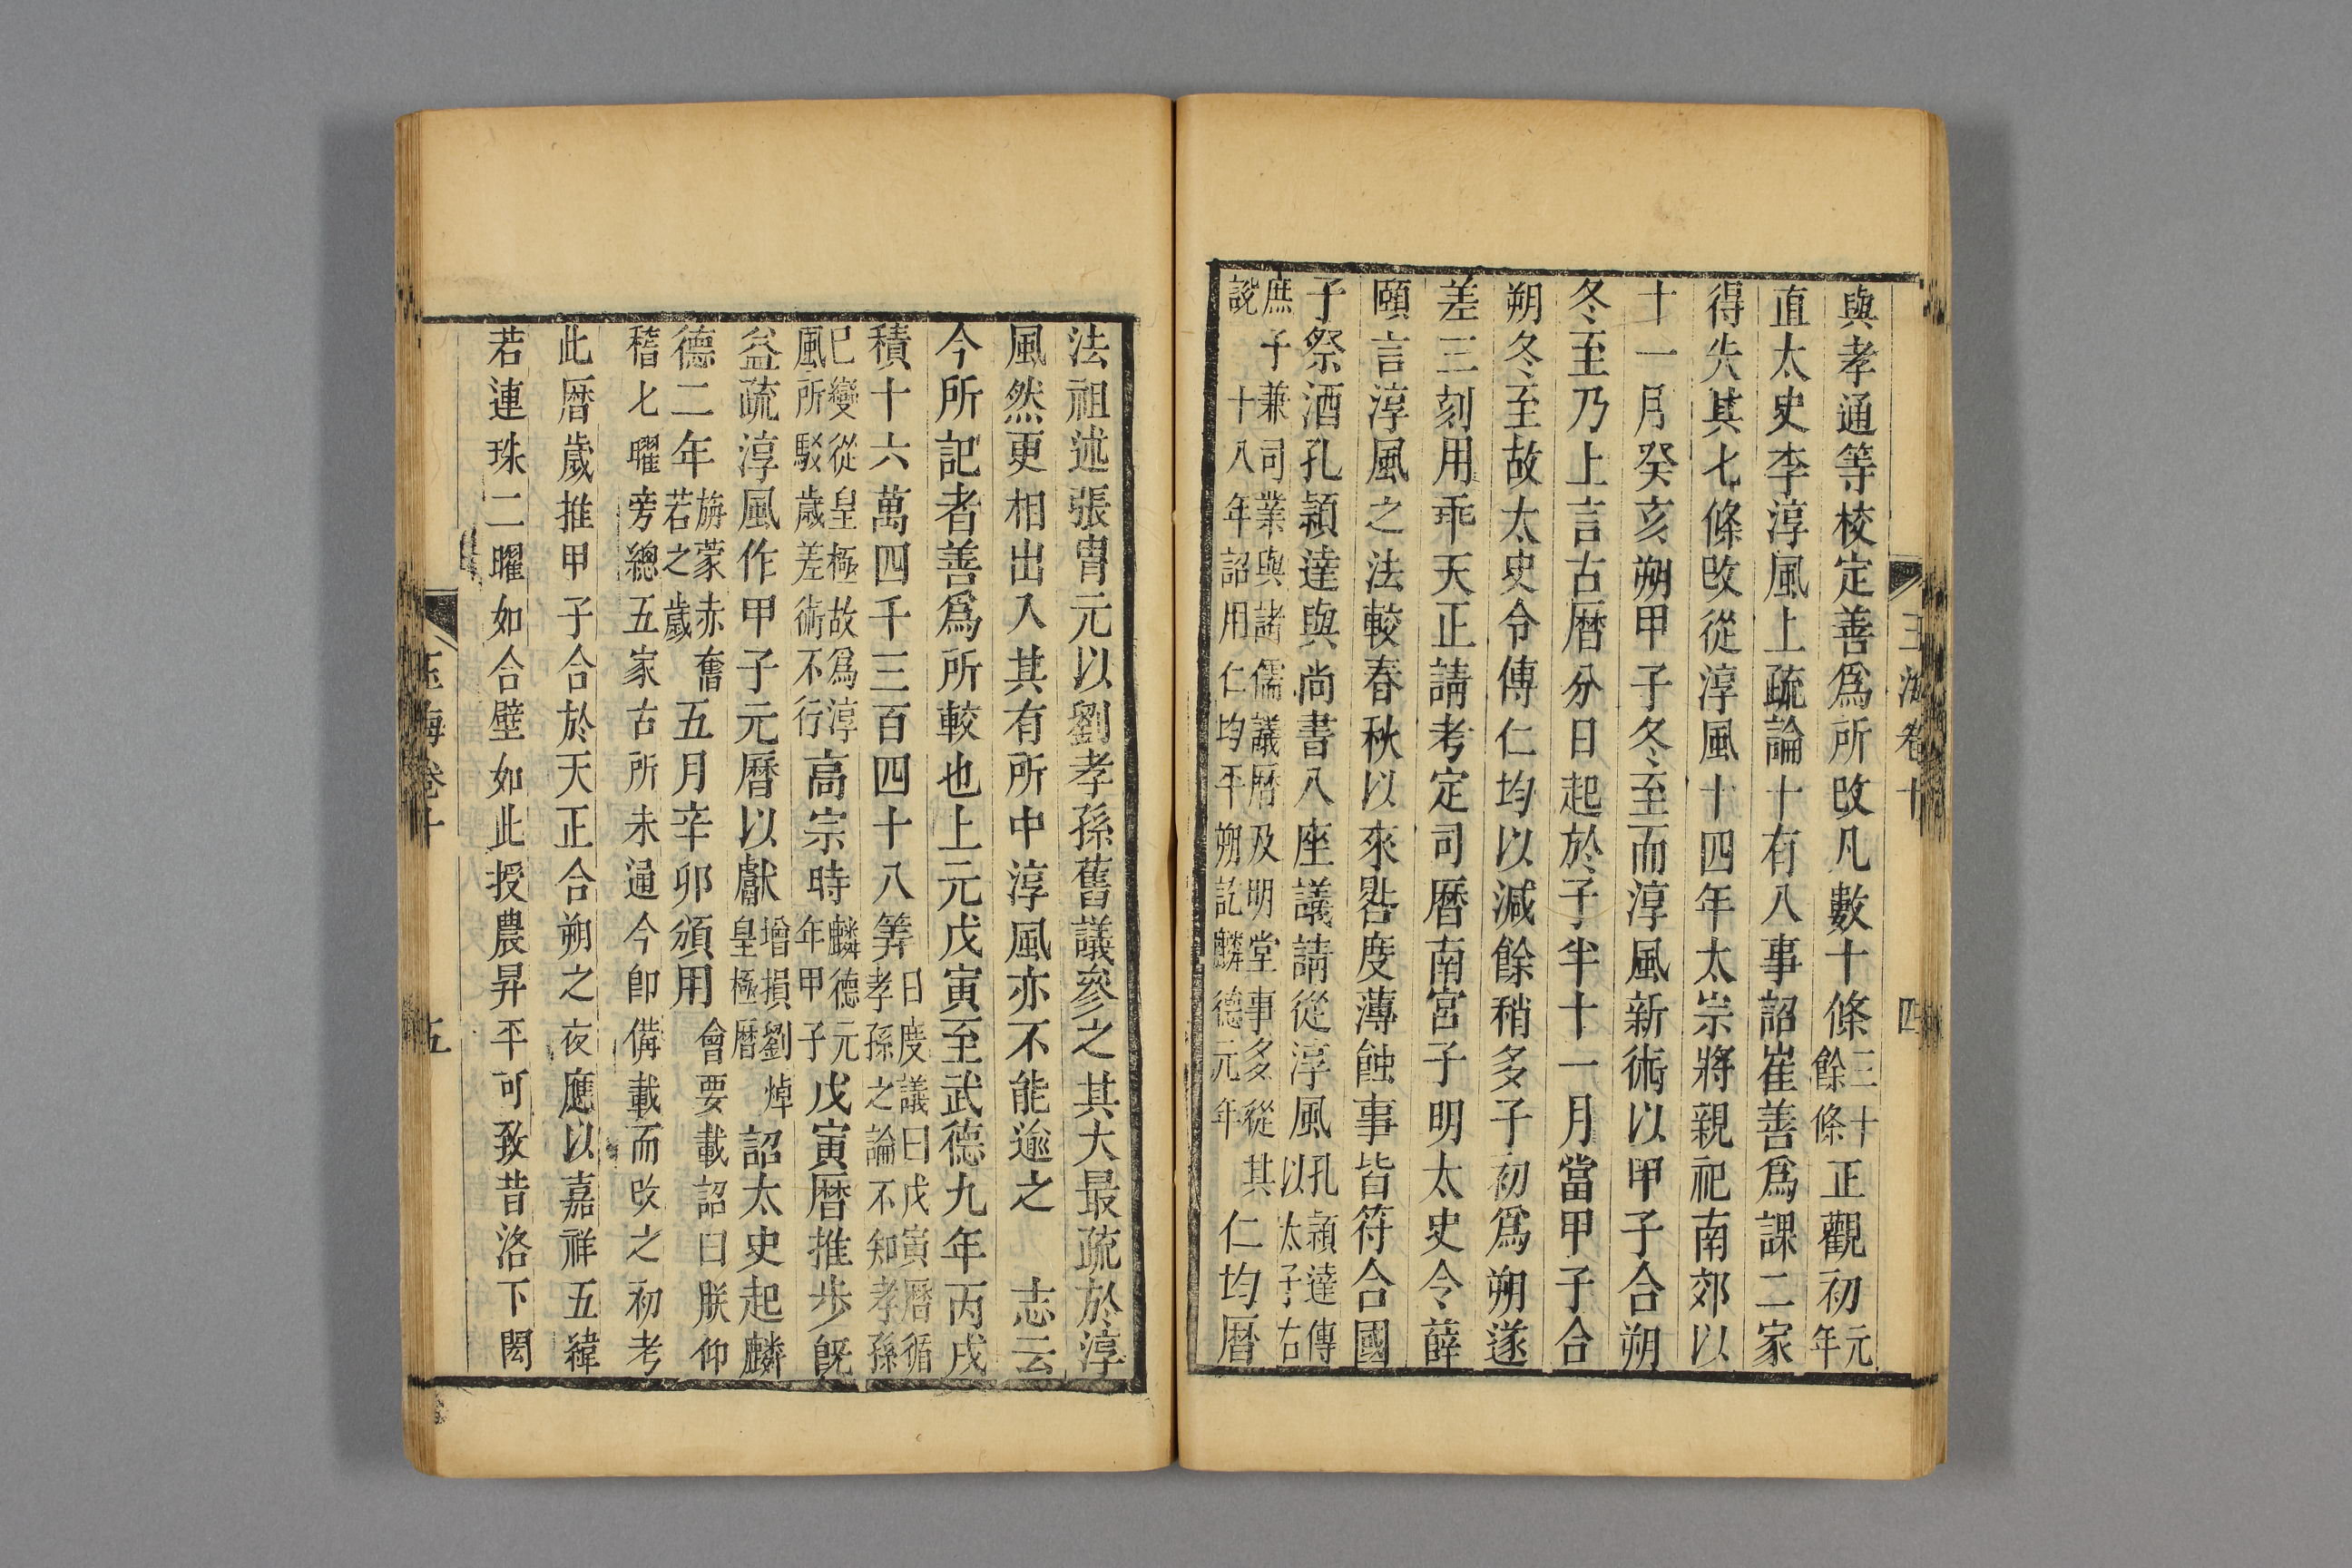 玉海卷十 四
與孝通等校定善爲所改凡數十條三十餘條正觀初元年
直太史李淳風上疏論十有八事詔崔善爲課二家
得失其七條改從淳風十四年太宗將親祀南郊以
十一月癸亥朔甲子冬至而淳風新術以甲子合朔
冬至乃上言古曆分日起於子半十一月當甲子合
朔冬至故太史令傅仁均以減餘稍多子初爲朔遂
差三刻用乖天正請考定司曆南宮子明太史令薛
頤言淳風之法較春秋以來晷度薄蝕事皆符合國
子祭酒孔穎達與尚書八座議請從淳風孔穎達傳以太子右
庶子兼司業與諸儒議曆及明堂事多從其說 十八年詔用仁均平朔訖麟德元年仁均曆
法祖述張冑元以劉孝孫舊議參之其大最疏於淳
風然更相出入其有所中淳風亦不能逾之 志云
今所記者善爲所較也上元戊寅至武德九年丙戌
積十六萬四千三百四十八筭日度議曰戊寅曆循孝孫之論不知孝孫
已變從皇極故爲淳風所駁歲差術不行高宗時麟德元年甲子戊寅曆推步旣
益疏淳風作甲子元曆以獻增損劉焯皇極曆詔太史起麟
德二年旃蒙赤奮若之歲五月辛卯頒用會要載詔曰朕仰
稽七曜旁總五家古所未通今卽備載而改之初考
此曆歲推甲子合於天正合朔之夜應以嘉祥五緯
若連珠二曜如合璧如此授農昇平可致昔洛下閎
玉海卷十 五